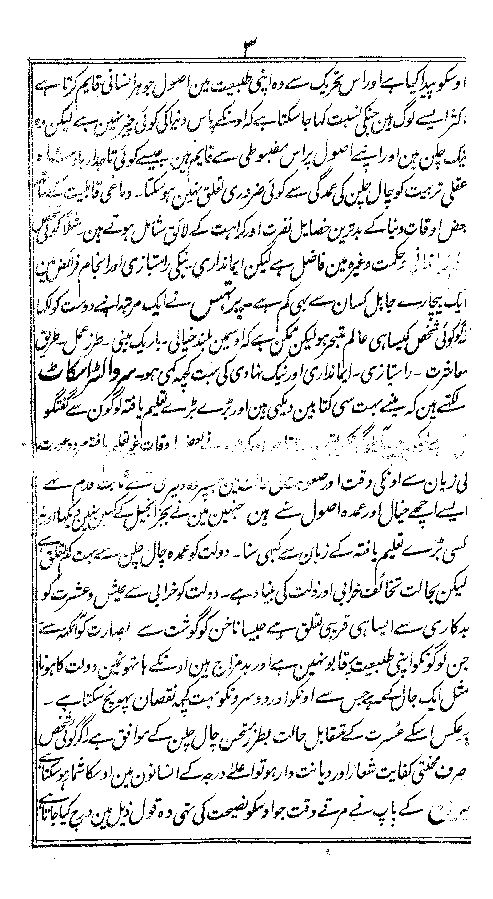 ۳
اوسکو پیدا کیا ہے اور اس تحریک سے وہ اپنی طبیعت مین اصول جوہر انسانی قایم کرتا ہے
اکثر ایسے لوگ ہین جنکی نسبت کہا جا سکتا ہے کہ اونکے پاس دنیا کی کوئی چیز نہین ہے لیکن وہ
نیک چلن ہین اور اپنے اصول پر اس مضبوطی سے قایم ہین جیسے کوئی تاجدار بادشاہ
عقلی تربیت کو چال چلن کی عمدگی سے کوئی ضروری تعلق نہین ہو سکتا۔ دماغی قابلیت کیساتھ
بعض اوقات دنیا کے بدترین خصایل نفرت اور کراہت کے لائق شامل ہوتے ہین۔ مثلاً کوئی
حکمت وغیرہ مین فاضل ہے لیکن ایمانداری۔ نیکی راستبازی اور انجام فرائض مین
ایک بیچارے جاہل کسان سے بھی کم ہے۔ نے ایک مرتبہ اپنے دوست کو لکھا
گو کوئی شخص کیسا ہی عالم متبحر ہو لیکن ممکن ہے کہ اوسمین بلند خیالی۔ باریک بینی۔ طرز عمل۔ طریق
معاشرت۔ راستبازی۔ ایمانداری اور نیک نہادی کی بہت کچھ کمی ہو۔ سر والٹر اسکاٹ
لکھتے ہین کہ مینے بہت سی کتابین دیکھی ہین اور بڑے بڑے تعلیم یافتہ لوگون سے گفتگو
بعض اوقات غیر تعلیم یافتہ مرد و عورت
کی زبان سے اونکی وقت اور مین ثابت قدم سے
ایسے اچھے خیال اور عمدہ اصول سنے ہین جنہین مین نے بجز انجیل کے کہین نہین دیکھا اور نہ
کسی بڑے تعلیم یافتہ کے زبان سے کبھی سنا۔ دولت کو عمدہ چال چلن سے بہت کم تعلق ہے
لیکن بحالت تخالف خرابی اور ذلت کی بنیاد ہے۔ دولت کو خرابی سے عیش و عشرت کو
بدکاری سے ایسا ہی قریبی تعلق ہے جیسا ناخن کو گوشت سے بصارت کو آنکھ سے
جن لوگونکو اپنی طبیعت پر قابو نہین ہے اور بد مزاج ہین اونکے ہاتھونمین دولت کا ہونا
مثل ایک جال کے ہے جس سے اونکو اور دوسرونکو بہت کچھ نقصان پہونچ سکتا ہے۔
برعکس اسکے عسرت کے مقابل حالت بطرز مستحسن چال چلن کے موافق ہے۔ اگر کوئی شخص
صرف محنتی کفایت شعار اور دیانت دار ہو تو اعلے درجہ کے انسانون مین اوسکا شمار ہو سکتا ہے
کے باپ نے مرتے وقت جو اوسکو نصیحت کی تھی وہ قول ذیل مین درج کیا جاتا ہے